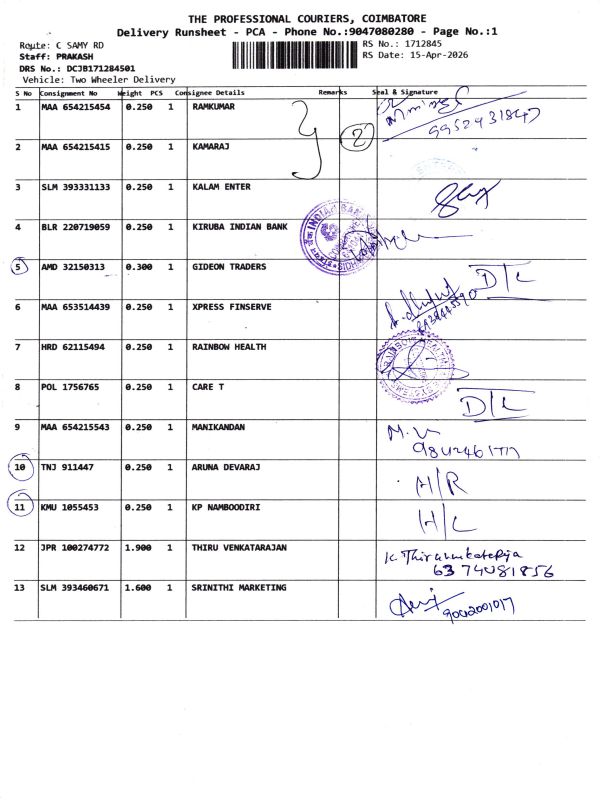 THE PROFESSIONAL COURIERS, COIMBATORE
Delivery Runsheet - PCA - Phone No.:9047080280 - Page No.:1
Route: C SAMY RD
RS No.: 1712845
Staff: PRAKASH
RS Date: 15-Apr-2026
DRS No.: DCJB171284501
Vehicle: Two Wheeler Delivery
S No Consignment No Weight PCS Consignee Details Remarks Seal & Signature
1 MAA 654215454 0.250 1 RAMKUMAR
9952431847
2
2 MAA 654215415 0.250 1 KAMARAJ
3 SLM 393331133 0.250 1 KALAM ENTER
4 BLR 220719059 0.250 1 KIRUBA INDIAN BANK
5 AMD 32150313 0.300 1 GIDEON TRADERS D/L
6 MAA 653514439 0.250 1 XPRESS FINSERVE
7 HRD 62115494 0.250 1 RAINBOW HEALTH
8 POL 1756765 0.250 1 CARE T D/L
9 MAA 654215543 0.250 1 MANIKANDAN
10 TNJ 911447 0.250 1 ARUNA DEVARAJ H/R
11 KMU 1055453 0.250 1 KP NAMBOODIRI H/L
12 JPR 100274772 1.900 1 THIRU VENKATARAJAN
6374081856
13 SLM 393460671 1.600 1 SRINITHI MARKETING
9002001017